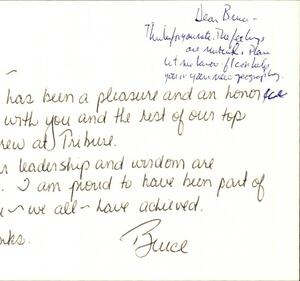 Dear Bruce -
Thanks for your note. The feelings
are mutual. Please
let me know if I can help
you in your new
has been a pleasure and an honor
with you and the rest of our top
rew at Tribune.
r leadership and wisdom are
. I am proud to have been part of
u - we all - have achieved.
nks.
Bruce